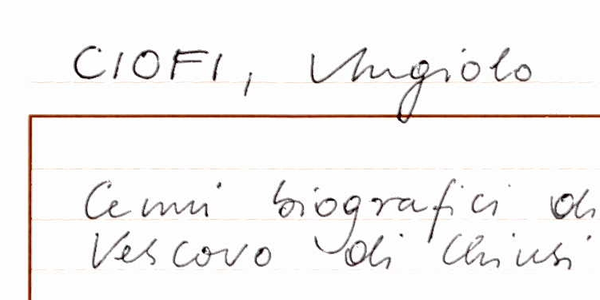 CIOFI, Angiolo
Cenni biografici di
Vescovo di Chiusi